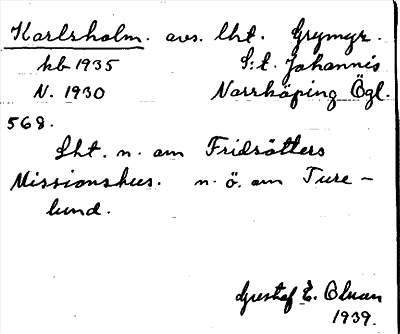 Karlsholm. avs. lht. Grymgr.
kb 1935 S:t. Johannis
N. 1930 Norrköping Ögl.
568.
Lht. n. om Fridsätters
Missionshus. n. ö. om Ture-
lund.
Gustaf E. Olman
1939.